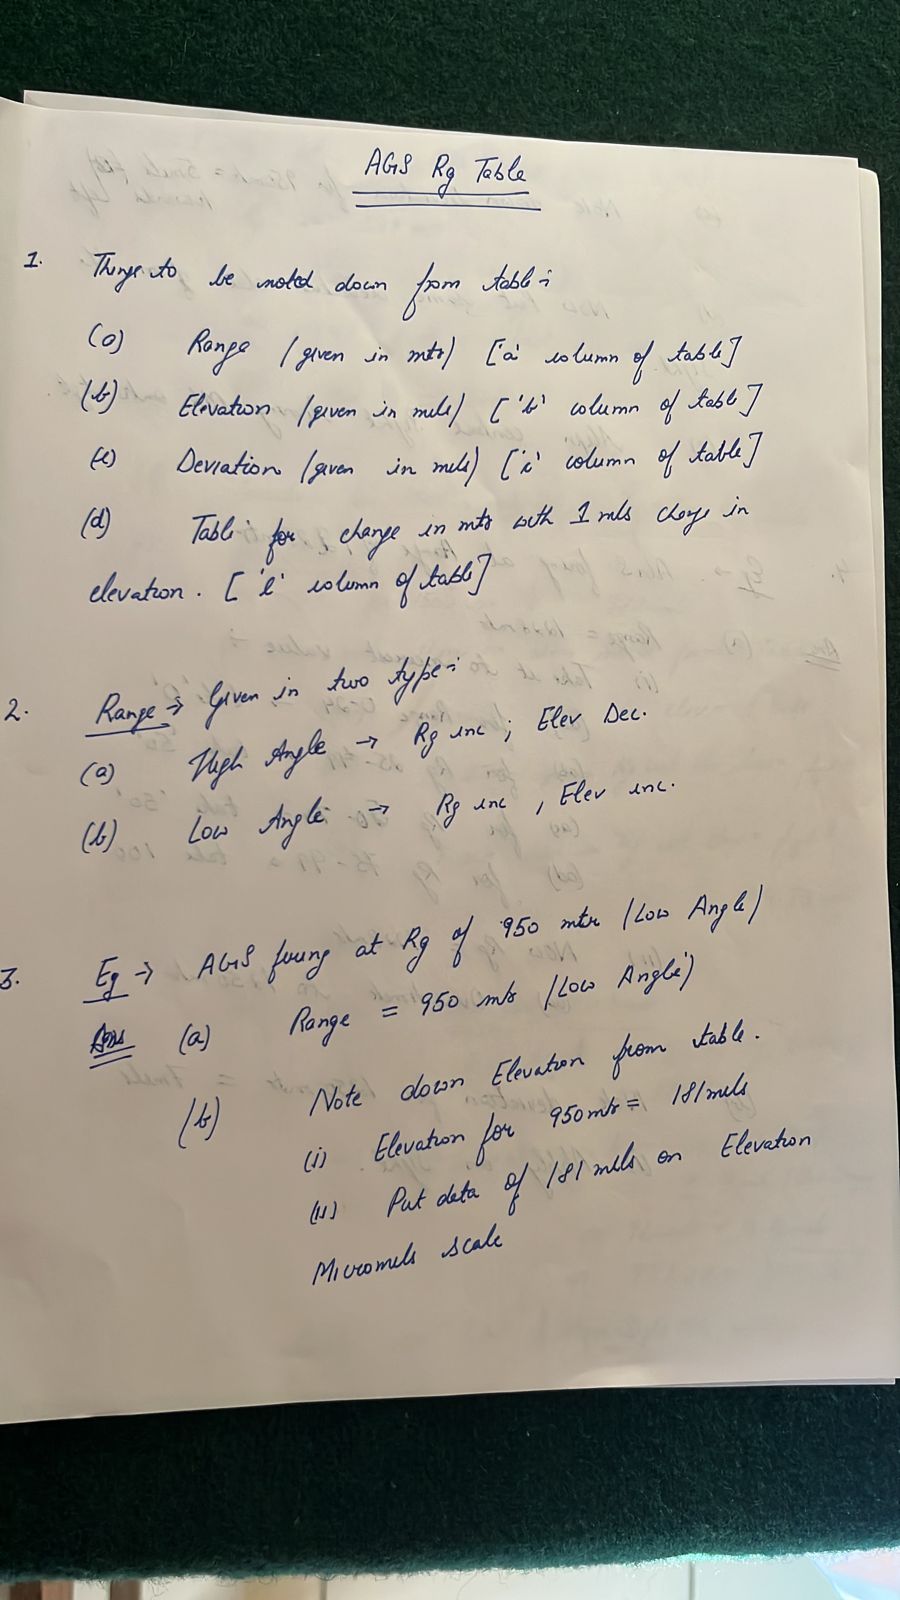 AGS Rg Table
1. Things to be noted down from table:-
(a) Range (given in mtr) ['a' column of table]
(b) Elevation (given in mils) ['b' column of table]
(c) Deviation (given in mils) ['c' column of table]
(d) Table for change in mtr with 1 mls change in
elevation. ['l' column of table]
2. Range → Given in two type:-
(a) High Angle → Rg inc ; Elev Dec.
(b) Low Angle → Rg inc , Elev inc.
3. Eg → AGS firing at Rg of 950 mtr (Low Angle)
Ans (a) Range = 950 mtr (Low Angle)
(b) Note down Elevation from table.
(i) Elevation for 950 mtr = 181 mils
(ii) Put data of 181 mils on Elevation
Micromels scale